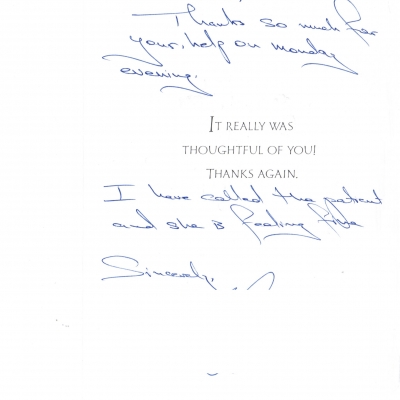 Thanks so much for
your help on monday
evening.
IT REALLY WAS
THOUGHTFUL OF YOU!
THANKS AGAIN.
I have called the patient
and she is feeling fine
Sincerely,